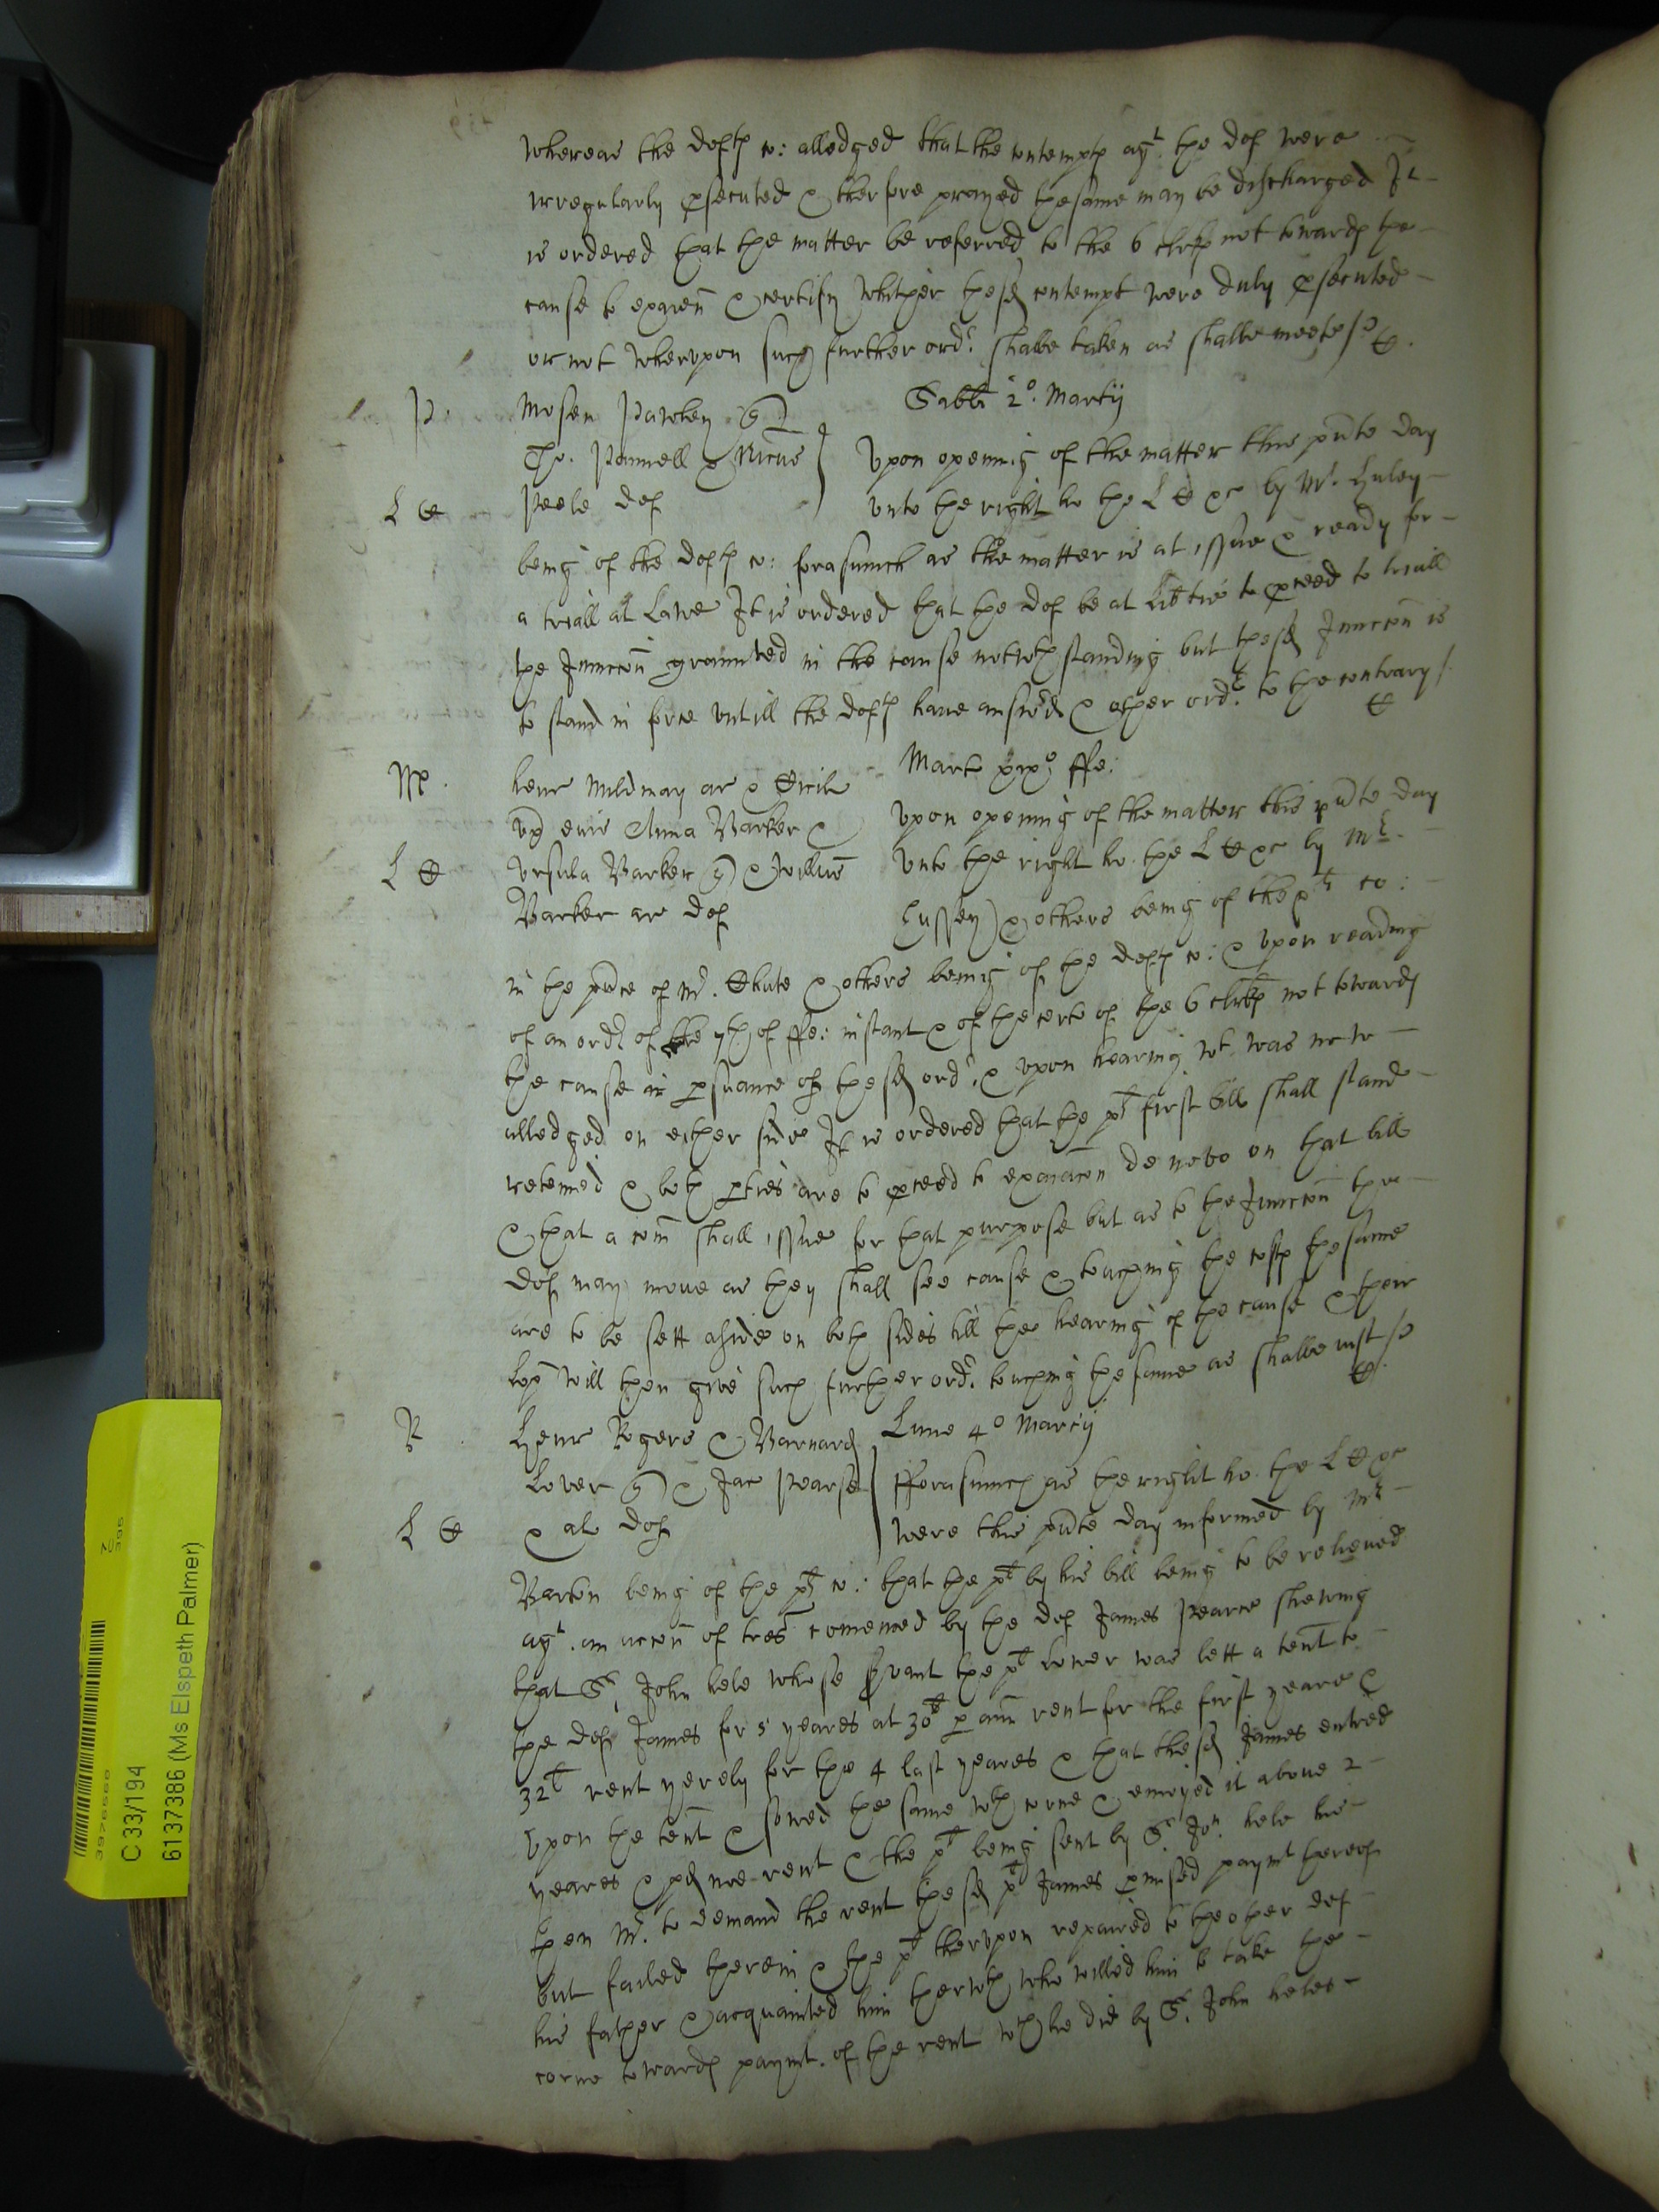 Whereas the deftes co: alledged that the contempts agt. the def were
irregularly psecuted & therfore prayed the same may be discharged It
is ordered that the matter be referred to the 6 clrkes not towards the
cause to examen & certify whither the sd contempt were duly psecuted
or not wherupon such further ordr. shalbe taken as shalbe meete
Sabbi 2o. Martij
P.
Tho. Pannell &
Upon opening of the matter this pnte day
L C
Peele def
unto the right ho the L C &c by Mr.
being of the deftes co: forasmuch as the matter is at issue & ready for
a triall at Lawe It is ordered that the def be at libtie to pceed to triall
the Iniuncon graunted in the cause notwth standing but the sd Iniuncon is
to stand in force untill the deftes have answrd & other ordr. to the contrary
Mart xixo ffe:
M.
henr Mildmay ar & Cicil
ux eius Anna Barker &
Upon opening of the matter this pnte day
L C
Ursula Barker q & Willus
unto the right ho. the L C &c by Mr.
Barker ar def
& others being of the plts co:
in the pnce of Mr. Chute & others being of the deftes co: & upon reading
of an ordr of the 7th of ffe: instant & of the certe of the 6 clrkes not towards
the cause in psuance of the sd ordr. & upon hearing wt. was now
alledged on either side It is ordered that the plt first bill shall stand
reteined & both pties are to pceed to examacon de novo on that bill
& that a comn shall issue for that purpose but as to the Iniuncon the
def may move as they shall see cause & touching the costes the same
are to be sett aside on both sides till the hearing of the cause & their
lops will then give such further ordr. touching the same as shalbe iust
R
henr Rogers & Barnard
Lune 4o Marcij
Lover q & Jac Pearse
fforasmuch as the right ho. the L C &c
L C
& al def
were this pnte day informed by Mr
Barton being of the plt co: that the plt by his bill being to be relieved
agt. an accon of tres comenced by the def James Pearce shewing
that Sr. John hele whose svant the plt Lover was lett a tent to
the def James for 5 yeares at 30l p ann rent for the first yeare &
32l rent yerely for the 4 last yeares & that the sd James entred
upon the tent & sowed the same wth corne & enioyed it above 2
yeares & pd noe rent & the plt being sent by Sr. Jon. hele his
then Mr. to demand the rent the sd James pmised paymt thereof
but failed therein & the plt therupon repaired to the other def
his father & acquainted him therwth who willed him to take the
corne towards paymt. of the rent wch he did by Sr. John heles
C 33/194
6137386 (Ms Elspeth Palmer)